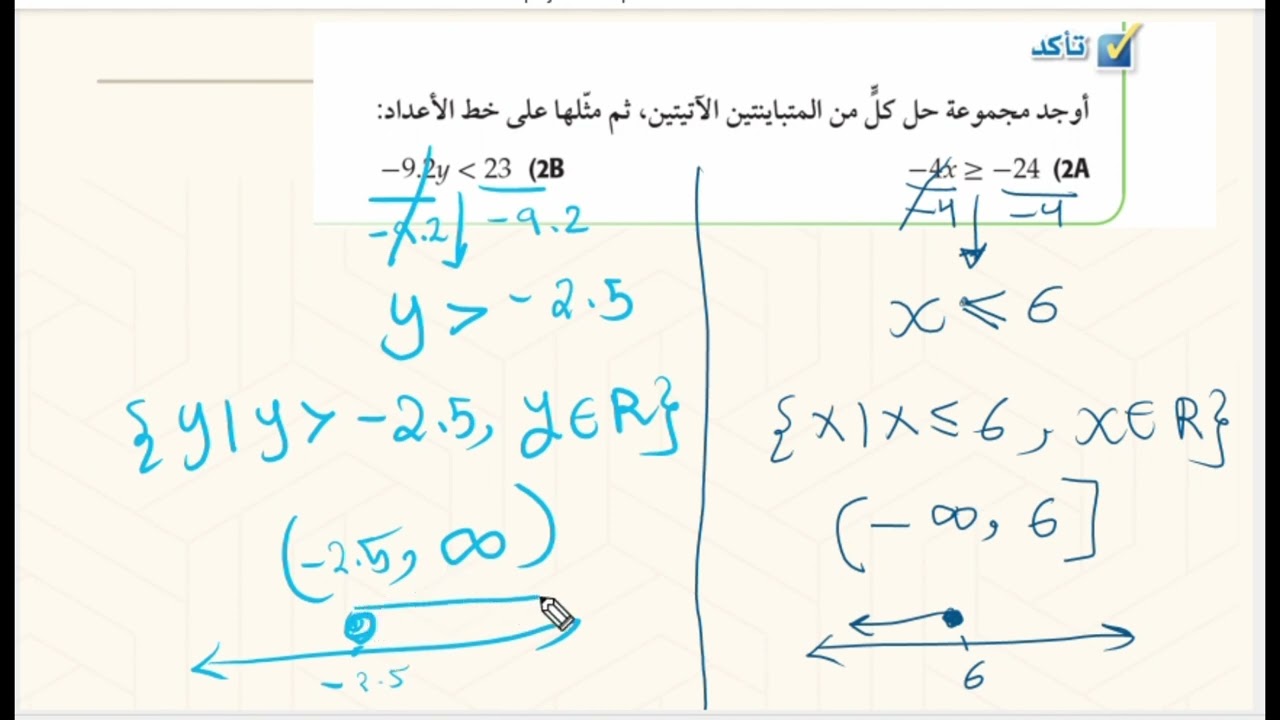 تأكد
أوجد مجموعة حل كلٍّ من المتباينتين الآتيتين، ثم مثّلها على خط الأعداد:
−4x ≥ −24 (2A
−4 −4
x ≤ 6
{x | x ≤ 6, x ∈ R}
(−∞, 6]
6
−9.2y < 23 (2B
−9.2 −9.2
y > −2.5
{y | y > −2.5, y ∈ R}
(−2.5, ∞)
−2.5